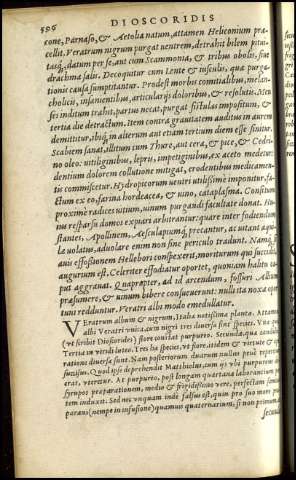 596 DIOSCORIDIS
cone, Parnaso, & Aetolia natum, attamen Heliconium præ-
cellit. Veratrum nigrum purgat uentrem, detrahit bilem pitu-
itasq́;, datum per se, aut cum Scammonia, & tribus obolis, siue
drachma salis. Decoquitur cum Lente & iusculis, quæ purga-
tionis causa sumptitantur. Prodest morbis comitialibus, melan-
cholicis, insanientibus, articularijs doloribus, & resolutis. Men-
ses inditum trahit, partus necat, purgat fistulas impositum, &
tertia die detractum. Item contra grauitatem auditus in aurem
demittitur, ibiq́; in alterum aut etiam tertium diem esse sinitur.
Scabiem sanat, illitum cum Thure, aut cera, & pice, & Cedri-
no oleo: uitiliginibus, lepris, impetiginibus, ex aceto medetur.
dentium dolorem collutione mitigat, erodentibus medicamen-
tis commiscetur. Hydropicorum uentri utilissime imponitur, fa-
ctum ex eo, farina hordeacea, & uino, cataplasma. Consitum
proximè radices uitium, uinum purgandi facultate donat. Hu-
ius resparsu domos expiari arbitrantur: quare inter fodiendum
stantes, Apollinem, Aesculapiumq́; precantur, ac uitant aqui-
la uolatus, aduolare enim non sine periculo tradunt. Namq́; si
auis effossionem Hellebori conspexerit, morituram qui succidit,
augurium est. Celeriter effodiatur oportet, quoniam halitu ca-
put aggrauat. Quapropter, ad id arcendum, fossuri Allium
præsumere, & uinum bibere consueuerunt: nulli ita noxa oppor-
tuni redduntur. Veratri albi modo emedullatur.
VEratrum album & nigrum, Italis notissima planta. Attamen
albi Veratri unica, cum nigri tres diuersæ sint species. Vna quæ
(ut scribit Dioscorides) flore constat purpureo. Secunda, quæ candido.
Tertia in uiridi luteo. Tres hæ species, ut flore, itidem & uirtute & ope-
ratione diuersæ sunt. Nam posteriorum duarum nullus penè repertus
succissus. Quod ipse deprehendit Matthiolus, cum ijs vbi purpureum de-
erat, vteretur. At purpureo, post longam quartana laborantium per
syrupos præparationem, medio & frigidissimo vere, perfectam sanita-
tem induxit. Sed nec vnquam inde falsus est, quin pro suo more præ-
parauit (nempe in infusione) quamuis quaternarium, si non primum,
secund